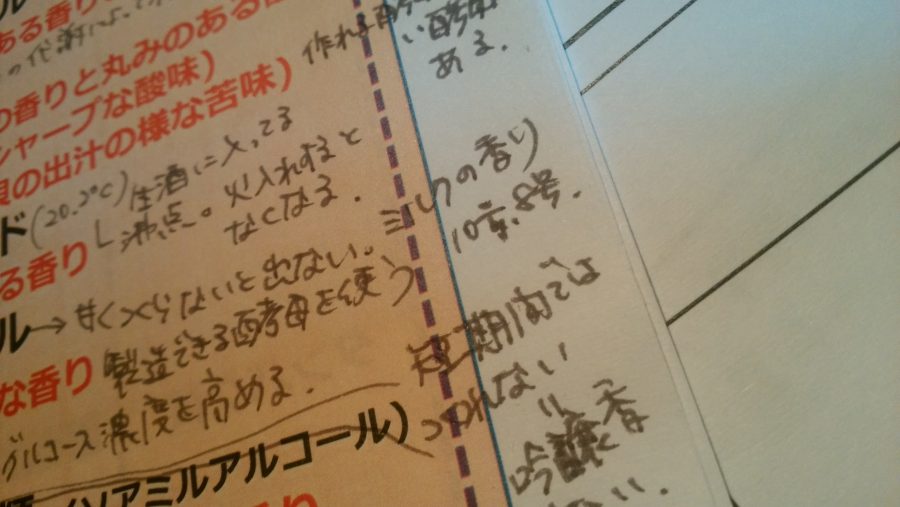 ある香り
の代謝によって
作れる酵母
い酵母
ある。
の香りと丸みのある
シャープな酸味)
の出汁の様な苦味)
ド(20.2℃)生酒に入ってる
沸点。火入れすると
なくなる。
ミルクの香り
10号、8号。
る香り
ル→甘くつくらないと出ない。
な香り 製造できる酵母を使う
グルコース濃度を高める。
短期間では
つくれない
吟醸香
(ソアミルアルコール)
ない。